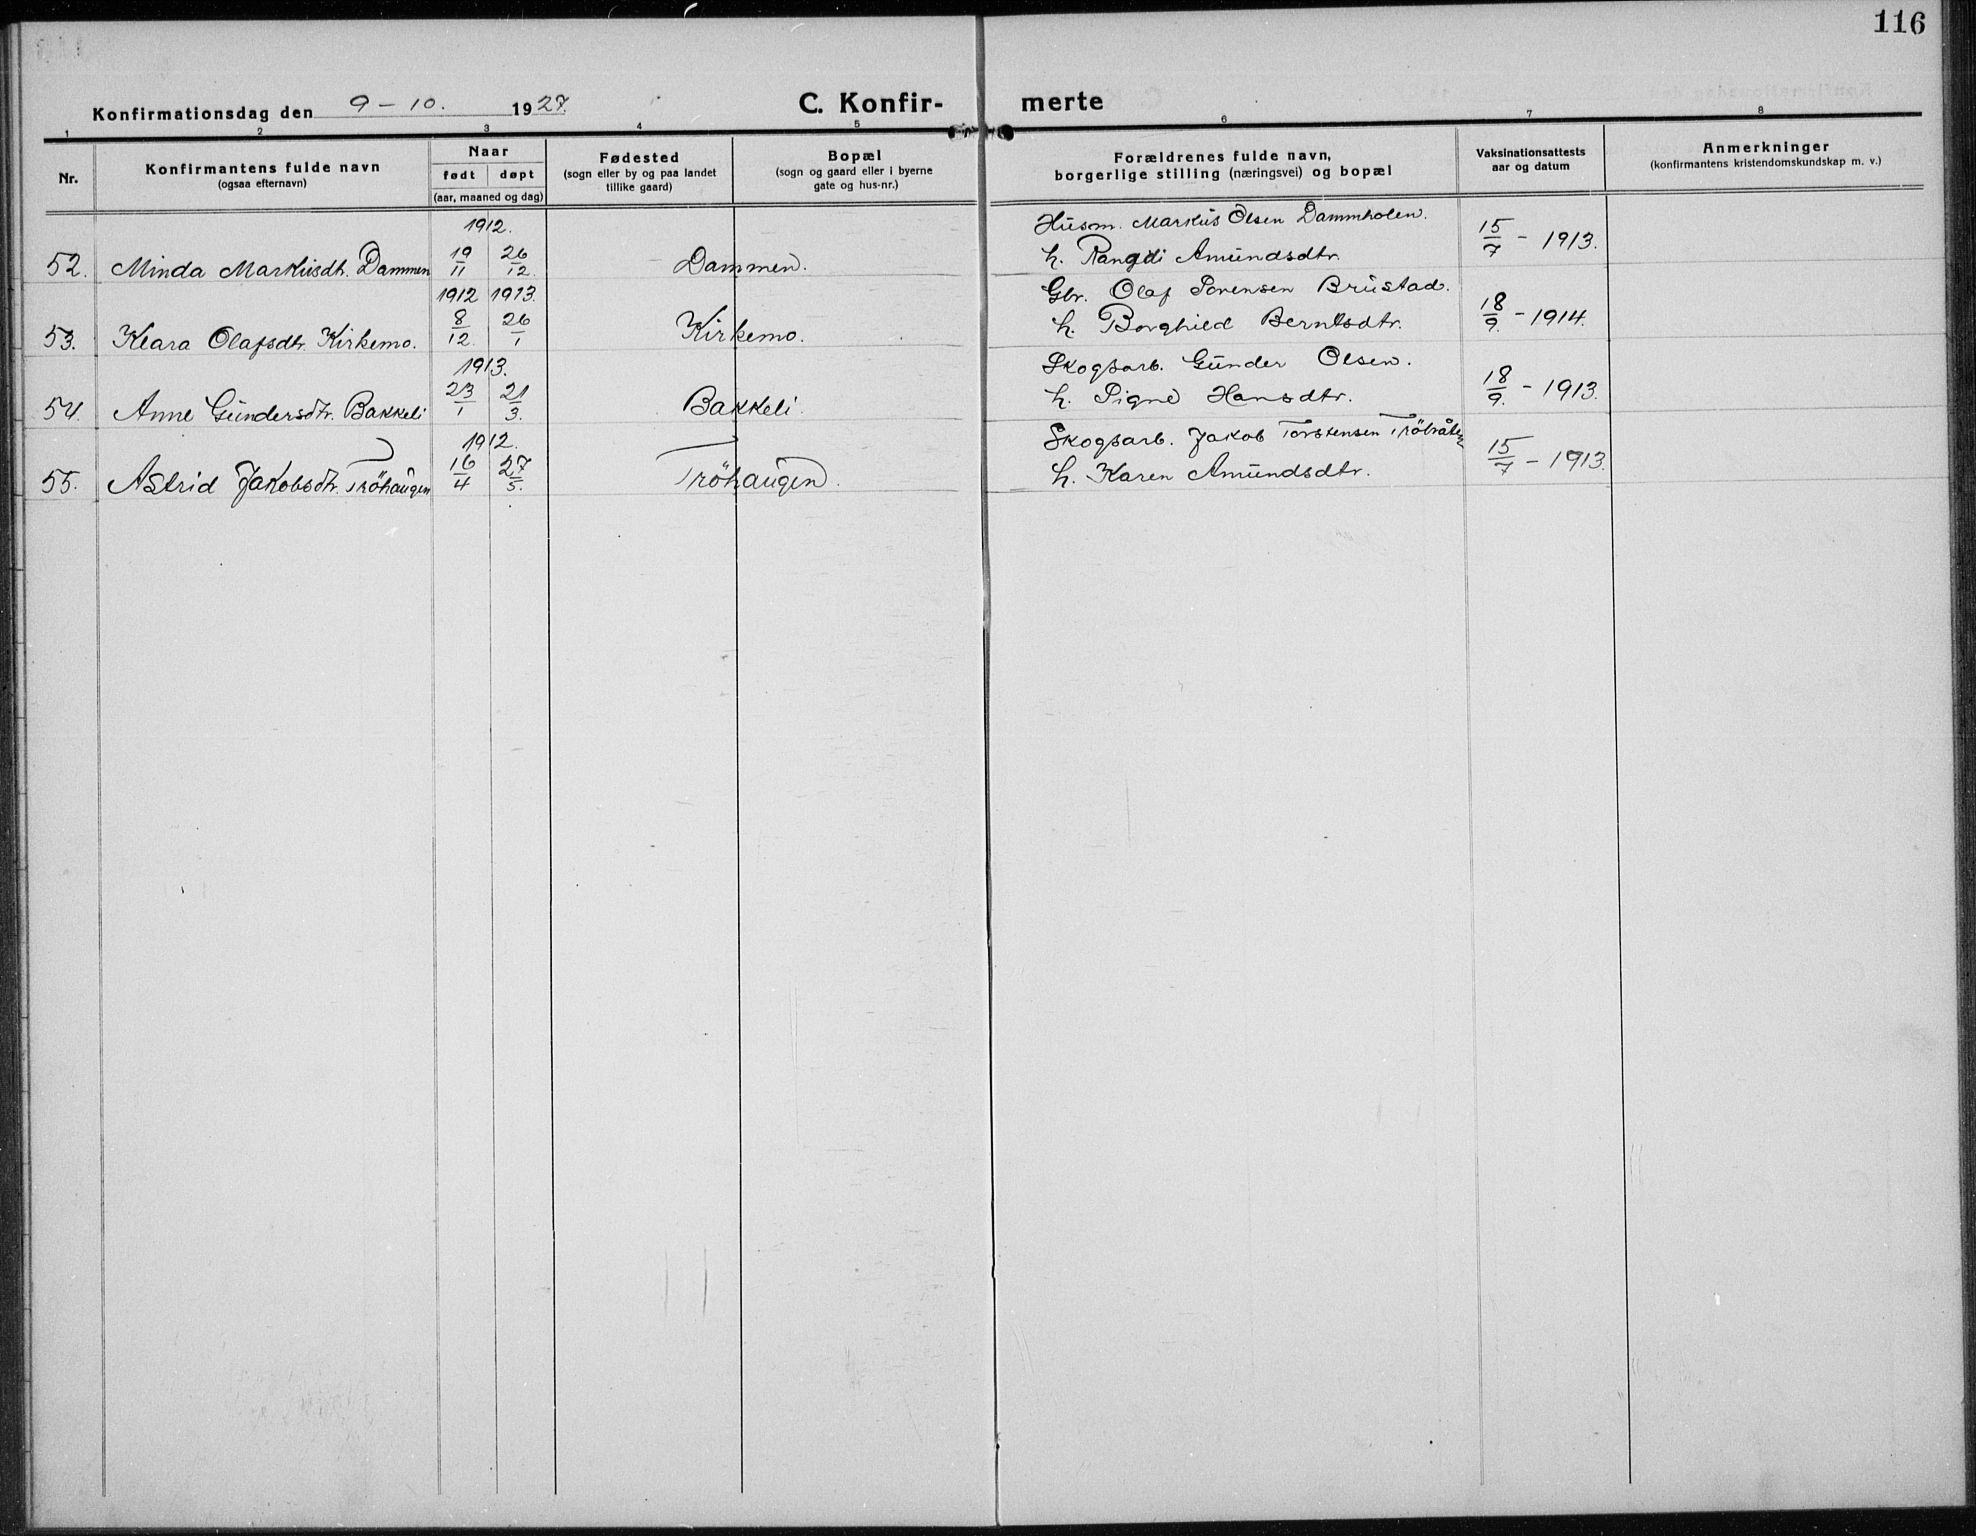 116
Konfirmationsdag den 9 – 10. 1927.
C. Konfir-
merte
1 2 3 4 5 6 7 8
Nr.
Konfirmantens fulde navn
(ogsaa efternavn)
Naar
født døpt
(aar, maaned og dag)
Fødested
(sogn eller by og paa landet
tillike gaard)
Bopæl
(sogn og gaard eller i byerne
gate og hus-nr.)
Forældrenes fulde navn,
borgerlige stilling (næringsvei) og bopæl
Vaksinationsattests
aar og datum
Anmerkninger
(konfirmantens kristendomskundskap m. v.)
1912. Husm. Markus Olsen Dammholen.
52. Minda Markusdt. Dammen 19/11 26/12. Dammen. h. Rangdi Amundsdtr. 15/7 – 1913.
1912 1913. Gbr. Olaf Sorensen Brustad.
53. Klara Olafsdtr. Kirkemo. 8/12. 26/1 Kirkemo. h. Borghild Berntsdtr. 18/9. – 1914.
1913. Skogsarb. Gunder Olsen.
54. Anne Gundersdtr. Bakkeli 23/1 21/3. Bakkeli. h. Signe Hansdtr. 18/9. – 1913.
1912. Skogsarb. Jakob Torstensen
55. Astrid Jakobsdtr. Tröhaugen 16/4 27/5. Tröhaugen. h. Karen Amundsdtr. 15/7 – 1913.